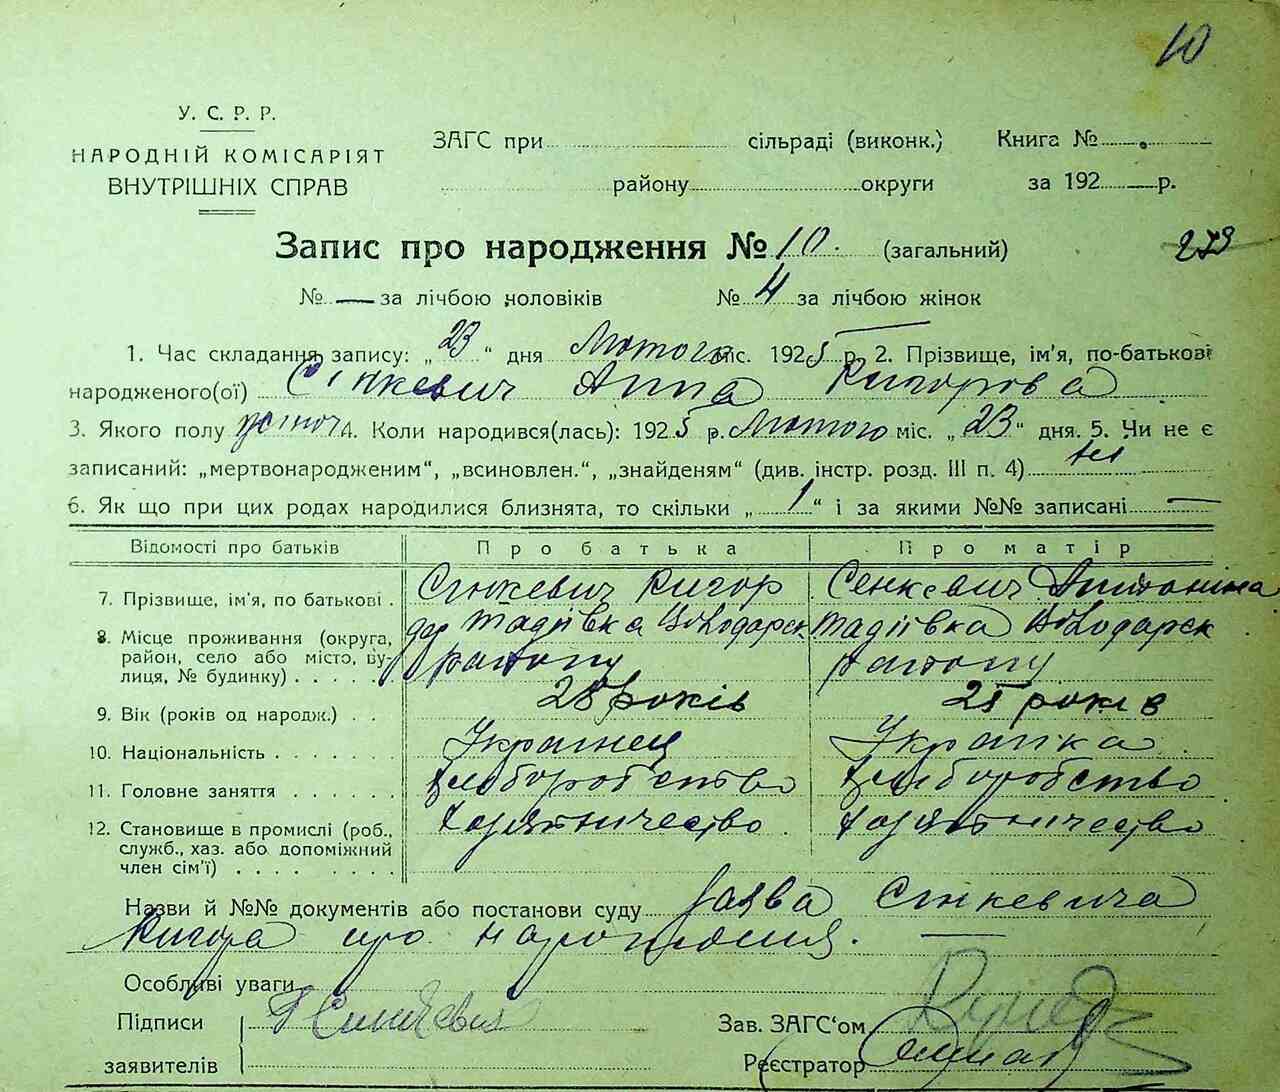 10
У. С. Р. Р.
НАРОДНІЙ КОМІСАРІЯТ
ВНУТРІШНІХ СПРАВ
ЗАГС при сільраді (виконк.) Книга №
району округи за 192 р.
Запис про народження № 10 (загальний) 279
№ — за лічбою чоловіків № 4 за лічбою жінок
1. Час складання запису: „23“ дня Лютого міс. 1925 р. 2. Прізвище, ім'я, по-батькові
народженого(ої) Сінкевич Анна Григорова
3. Якого полу жіноч 4. Коли народився(лась): 1925 р. Лютого міс. „23“ дня. 5. Чи не є
записаний: „мертвонародженим“, „всиновлен.“, „знайденям“ (див. інстр. розд. III п. 4) ні
6. Як що при цих родах народилися близнята, то скільки „1“ і за якими №№ записані —
Відомості про батьків Про батька Про матір
7. Прізвище, ім'я, по батькові . Сінкевич Григор Сенкевич Антоніна
8. Місце проживання (округа, район, село або місто, вулиця, № будинку) . . . . . дер Тадіївка Володарск району Тадіївка Володарск району
9. Вік (років од народж.) . . 28 років 25 років
10. Національність . . . . . . . Українец Українка
11. Головне заняття . . . . . . хліборобство хліборобство
12. Становище в промислі (роб., служб., хаз. або допоміжний член сім'ї) . . . . . . . .
Назви й №№ документів або постанови суду Заява Сінкевича
Григора про народження. —
Особливі уваги
Підписи Зав. ЗАГС'ом
заявителів Реєстратор